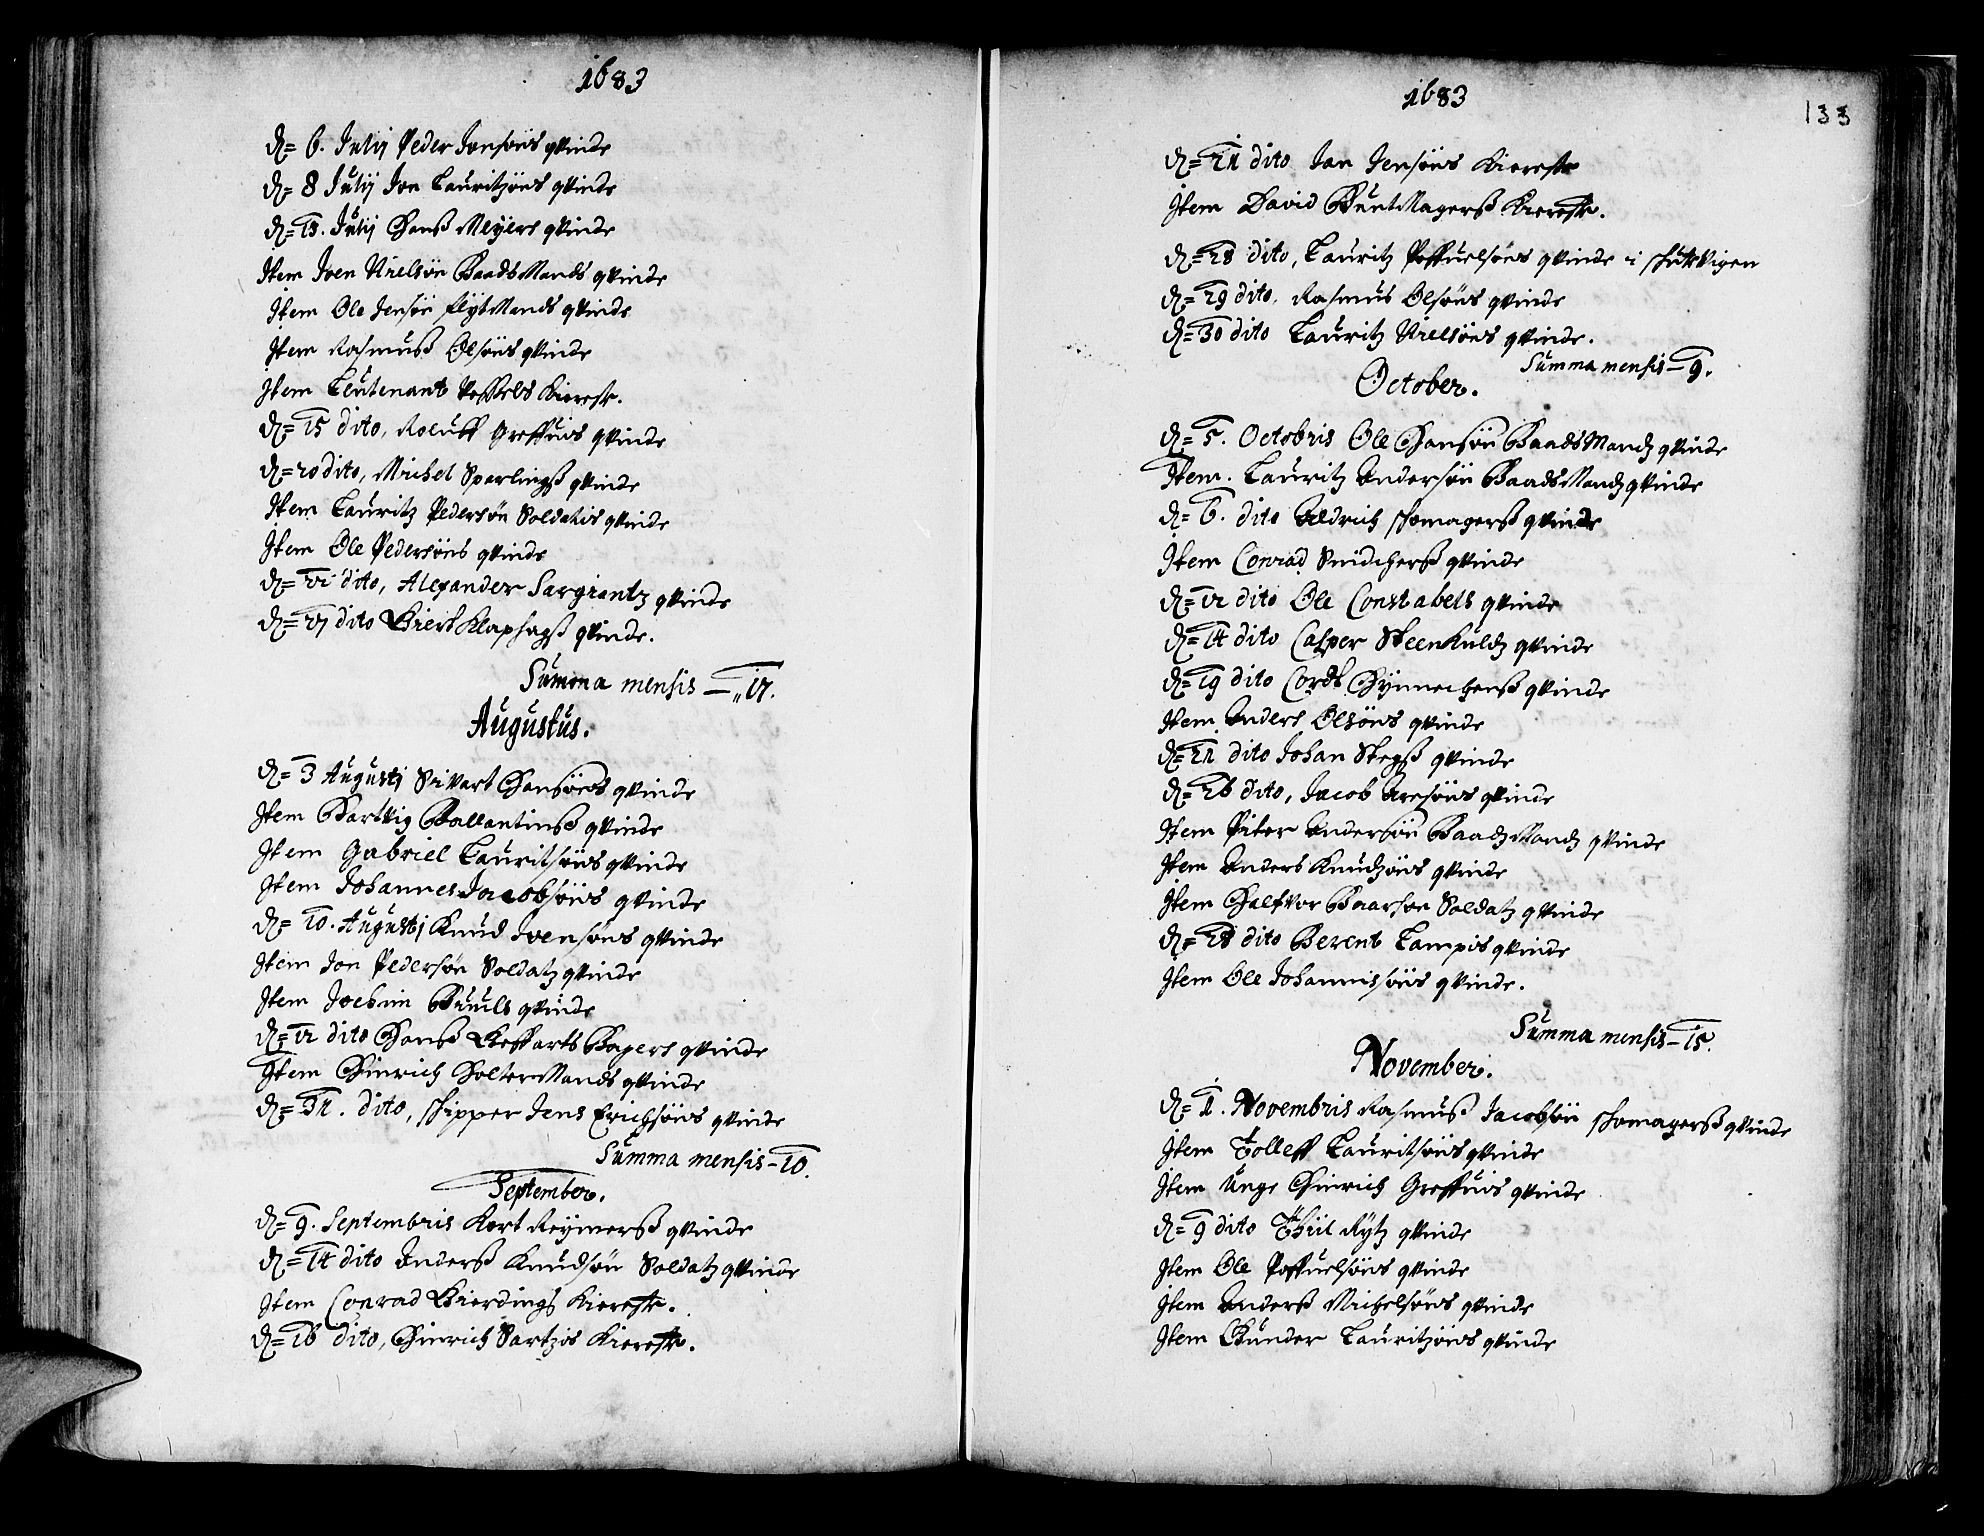 1683
D= 6. Julij Peder Jonsöns qvinde
D= 8 Julij Jon Lauritzöns qvinde
D= 13. Julij Hanß Meyers qvinde
Item Joen Nielsön Baadsmands qvinde
Item Ole Jensön flytmands qvinde
Item Rasmuß Olsöns qvinde
Item Leutenant kiereste.
D= 15 dito, Roluff Greffuis qvinde
D= 20 dito, Michel Sperlingß qvinde
Item Lauritz Pedersön Soldatis qvinde
Item Ole Pedersöns qvinde
D= 22 dito, Alexander Sargiantz qvinde
D= 27 dito Giert Klaphagß qvinde.
Summa mensis — 17.
Augustus.
D= 3 Augustj Sivart Hansöns qvinde
Item Hartvig Ballantinß qvinde
Item Gabriel Lauritsöns qvinde
Item Johannes Jacobsöns qvinde
D= 10. Augustj Knud Ivensöns qvinde
Item Jon Pedersön Soldatz qvinde
Item Jochim qvinde
D= 12 dito Hanß Bagers qvinde
Item Hinrich Holtermands qvinde
D= 31. dito, skipper Jens Erichsöns qvinde
Summa mensis – 10.
September.
D= 9. Septembris Kort Reymerß qvinde
D= 14 dito Anderß Knudsön Soldatz qvinde
Item Conrad Gierdings kiereste.
D= 16 dito, Hinrich Sartzis kiereste.
1683
133
D= 21 dito Jan Jensöns kiereste
Item David Buntmagerß kiereste.
D= 28 dito, Lauritz Poffuelsöns qvinde i skutevigen
D= 29 dito, Rasmus Olsöns qvinde
D= 30 dito Lauritz Nielsöns qvinde.
Summa mensis – 9.
October.
D= 5. Octobris Ole Hansön Baadsmandz qvinde
Item. Lauritz Andersön Baadsmandz qvinde
D= 6. dito Aldrich skomagerß qvinde
Item Conrad Snidcherß qvinde
D= 12 dito Ole Constabels qvinde
D= 14 dito Casper Steenkuldz qvinde
D= 19 dito Cordt Hynnechenß qvinde
Item Anders Olsöns qvinde
D= 21 dito Johan Stegß qvinde
D= 26 dito, Jacob Aresöns qvinde
Item Piter Andersön Baadzmandz qvinde
Item Anders Knudzöns qvinde
Item Halfvor Baarsen Soldatz qvinde
D= 28 dito Berent Lampis qvinde
Item Ole Johannissöns qvinde.
Summa mensis – 15.
November.
D= 1. Novembris Rasmuß Jacobsön skomagerß qvinde
Item Tolleff Lauritsöns qvinde
Item Unge Hinrich Greffuis qvinde
D= 9 dito Thiil Rytz qvinde
Item Ole Poffuelsöns qvinde
Item Anderß Michelsöns qvinde
Item Gunder Lauritzöns qvinde